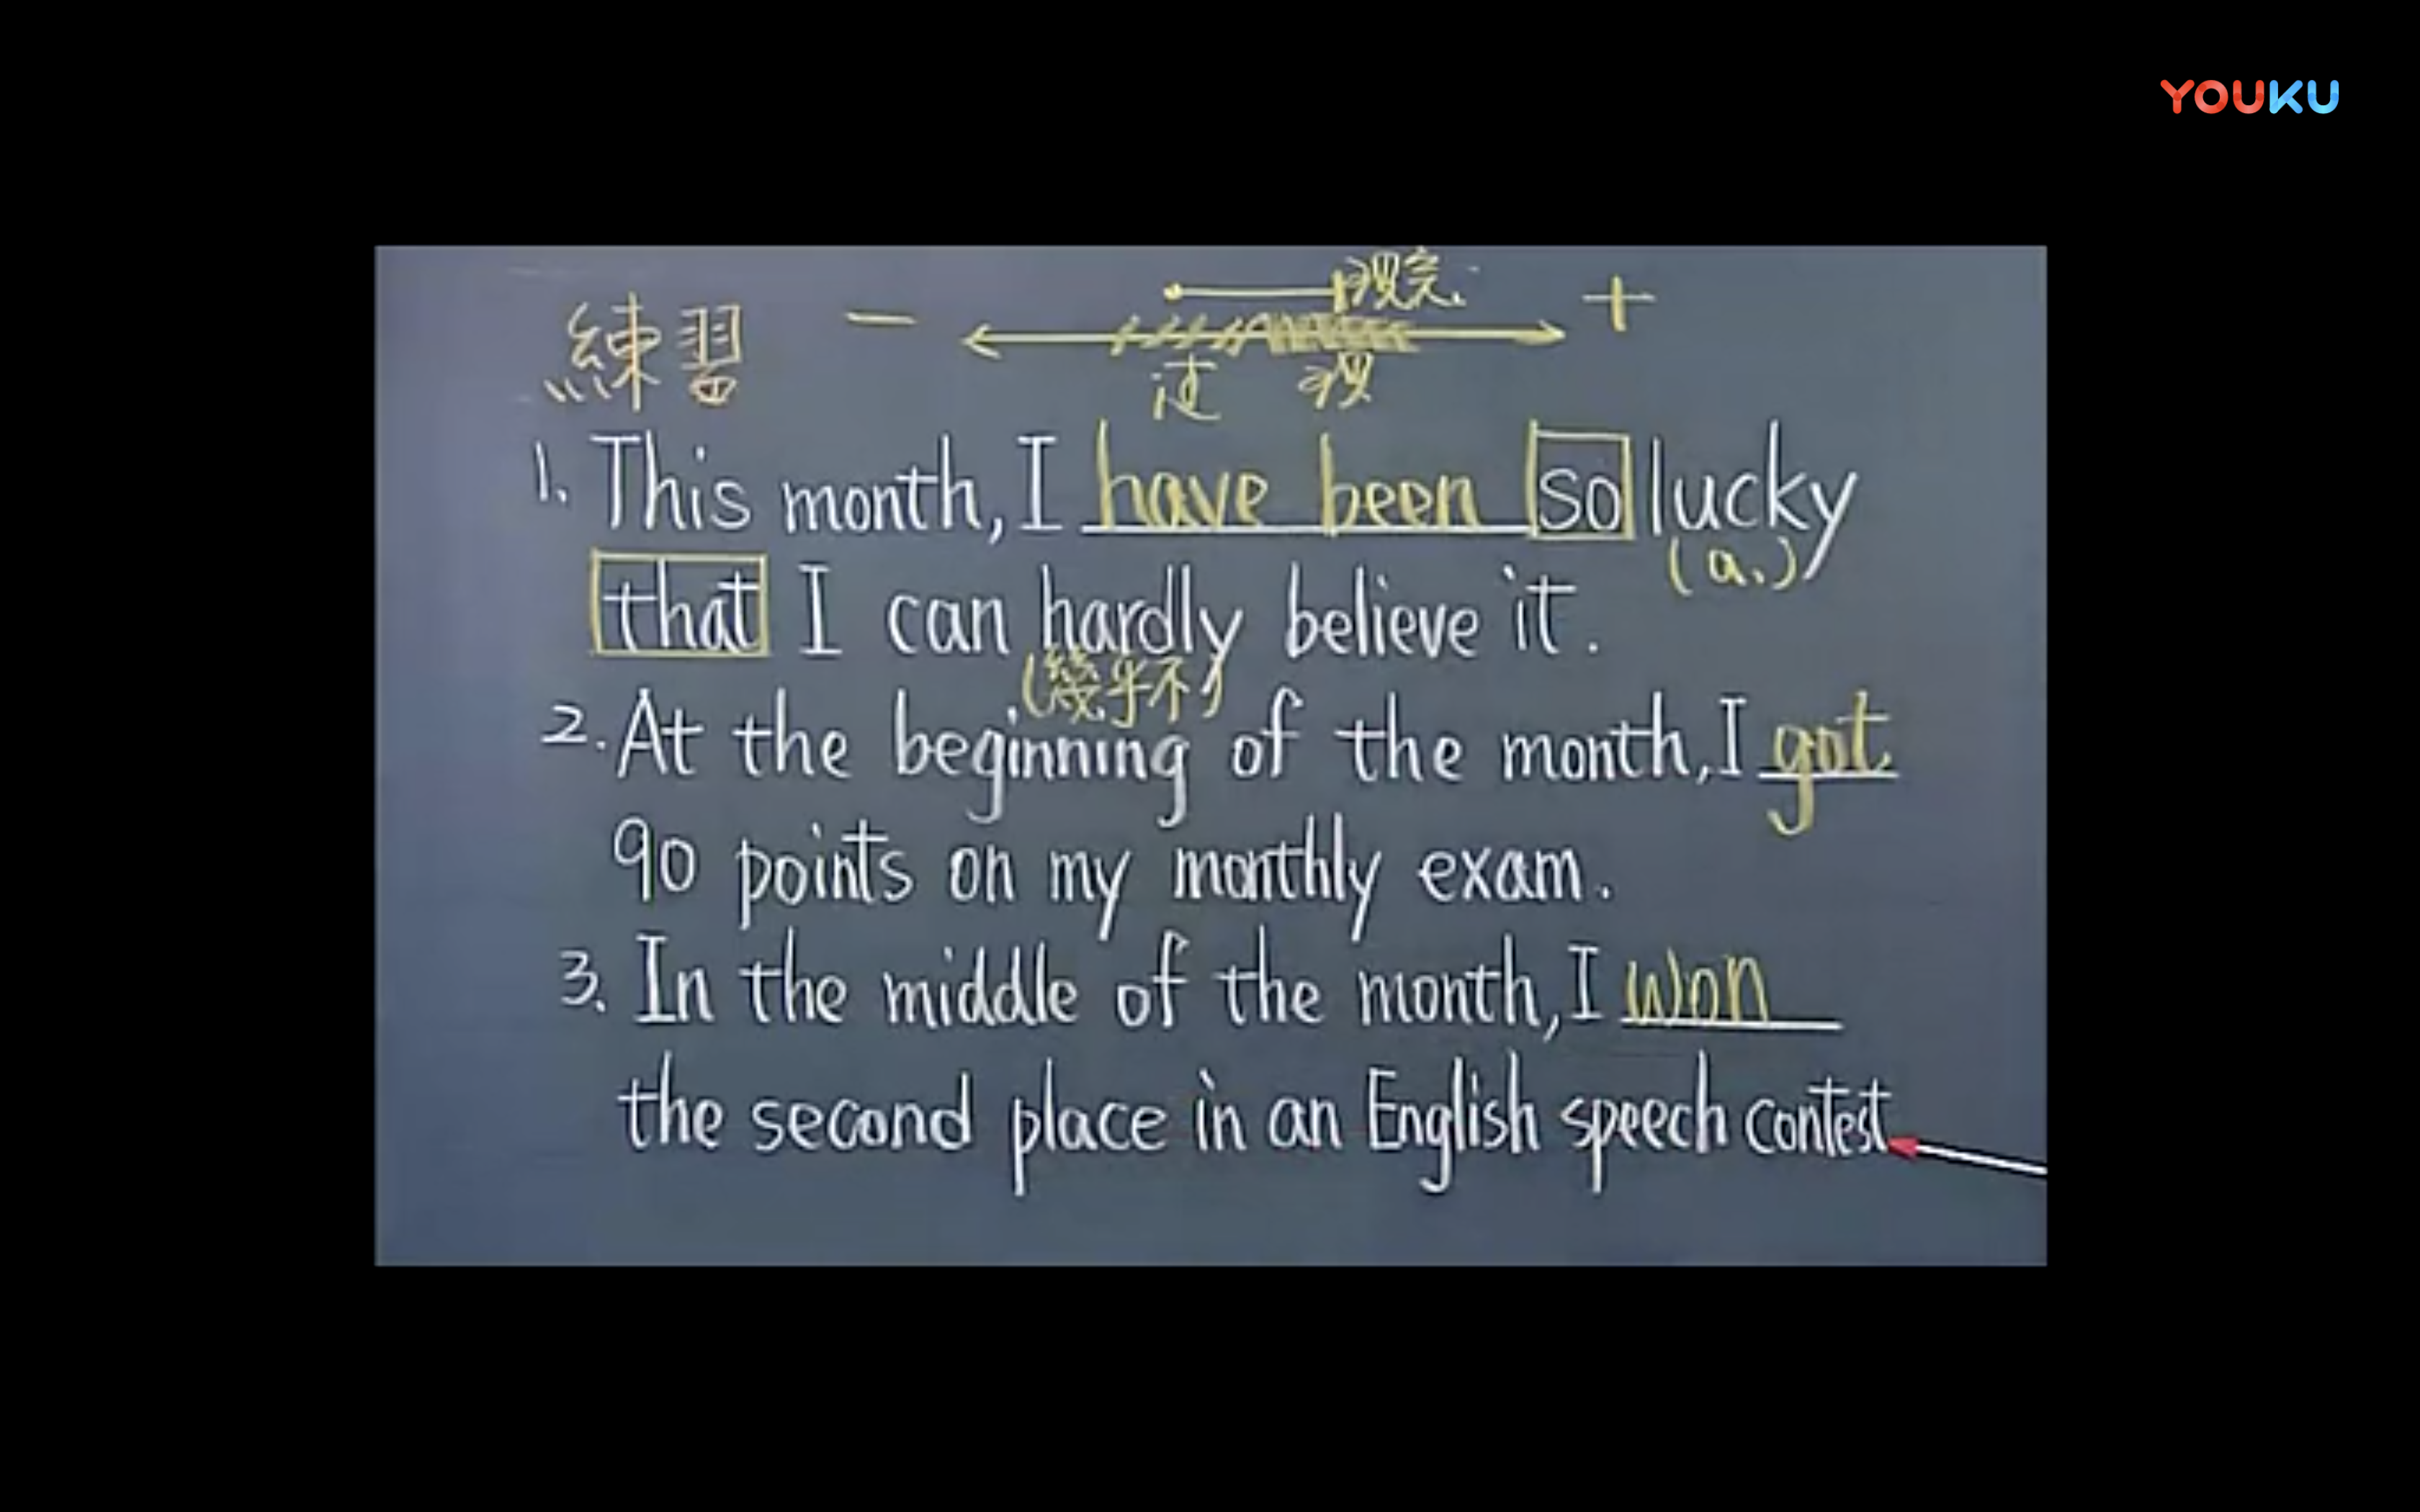 YOUKU
現完.
練習 − +
过 現
1. This month, I have been so lucky
(a.)
that I can hardly believe it.
(幾乎不)
2. At the beginning of the month, I got
90 points on my monthly exam.
3. In the middle of the month, I won
the second place in an English speech contest